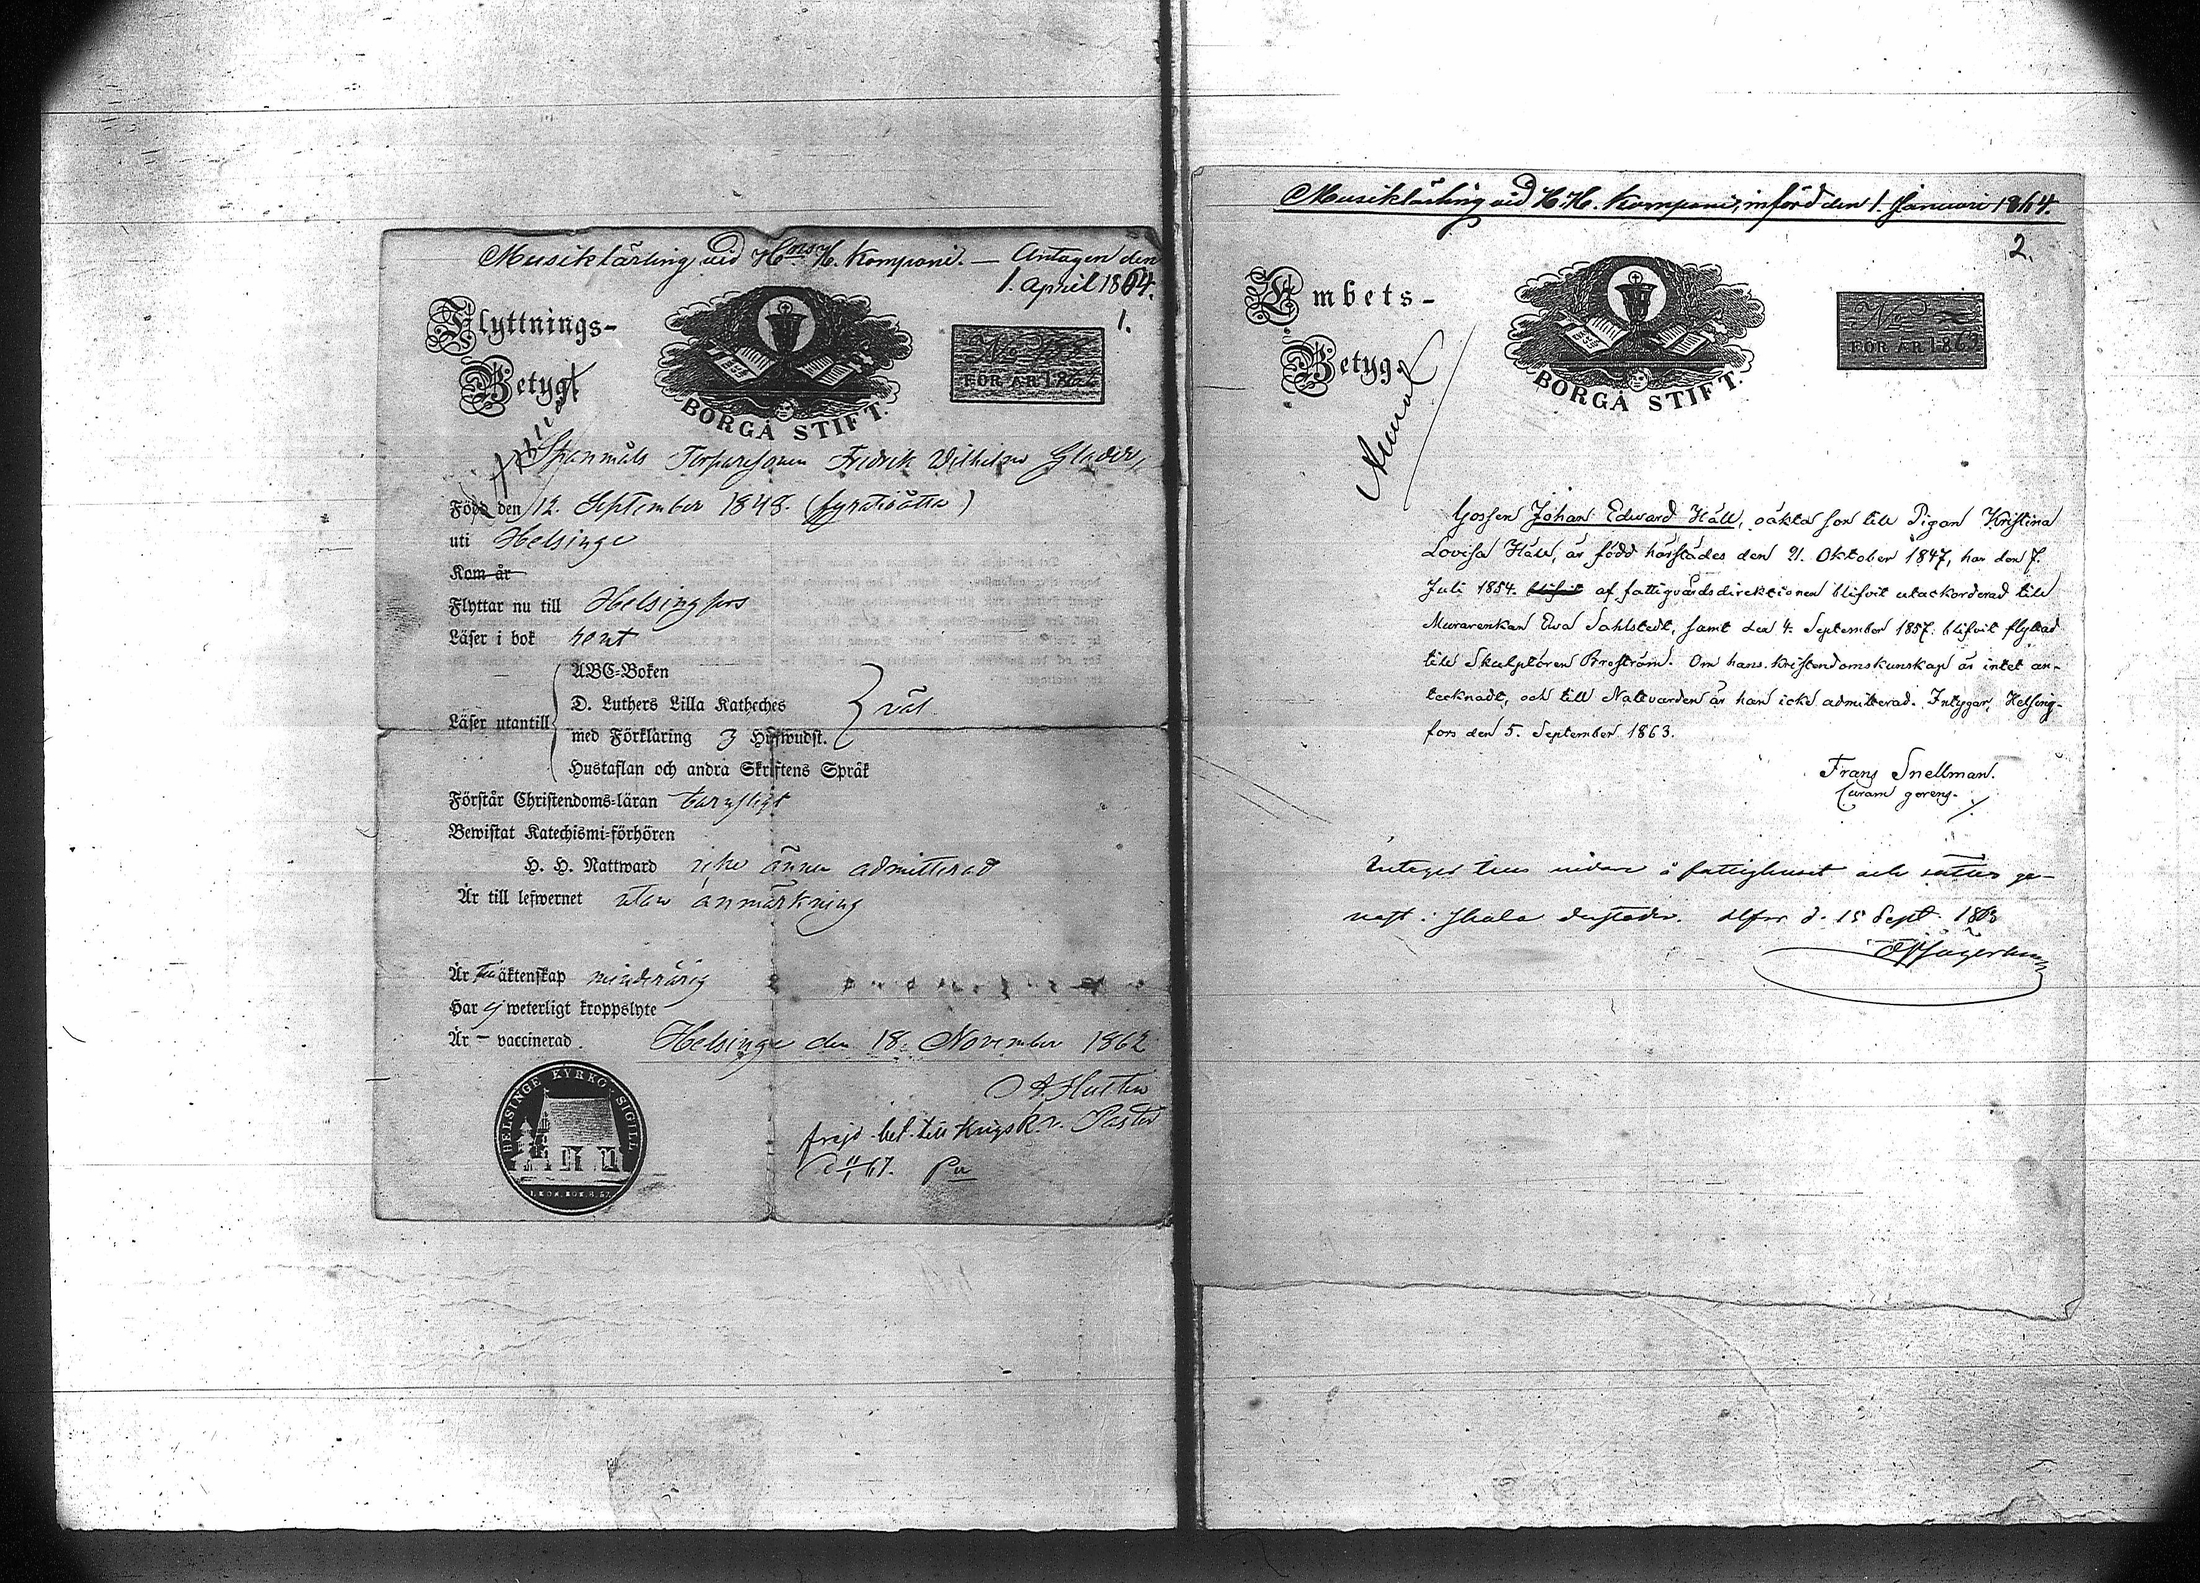 Musiklärling vid H:ns H. Kompani. — Antagen den
1. April 1864.
1.
Flyttnings-
Betyg
BORGÅ STIFT.
No
FÖR ÅR 1862
Torparesonen Fredrik Wilhelm
Född den 12. September 1848. (fyratioåtta)
uti Helsinge
Kom år
Flyttar nu till Helsingfors
Läser i bok rent
ABC-Boken
D. Luthers Lilla Katheches
Läser utantill
väl
med Förklaring 3 Hufwudst.
Hustaflan och andra Skriftens Språk
Förstår Christendoms-läran tarfligt
Bewistat Katechismi-förhören
H. H. Nattward icke ännu admitterad
Är till lefwernet utan anmärkning
Är till äktenskap minderårig
Har ej weterligt kroppslyte
Är — vaccinerad.
Helsinge den 18. November 1862
Pastor
HELSINGE KYRKO SIGILL
frejd bet. till
67.
Musiklärling vid H. H. Kompani, införd den 1. Januari 1864.
2.
Embets-
Betyg
BORGÅ STIFT.
No 2
FÖR ÅR 1863
Gossen Johan Edward Häll, oäkta son till Pigan Kristina
Lovisa Häll, är född härstädes den 21. Oktober 1847, har den 7.
Juli 1854. blifvit af fattigvårdsdirektionen blifvit utackorderad till
Murarenkan Ewa Sahlstedt, samt den 4. September 1857. blifvit flyttad
till Skulptören Broström. Om hans kristendomskunskap är intet an-
tecknadt, och till Nattvarden är han icke admitterad. Intygar, Helsing-
fors den 5. September 1863.
Frans Snellman.
Curam gerens.
Intages tills vidare å fattighuset och sättes ge-
nast i skola derstädes. Hfors d. 15 Sept. 1863